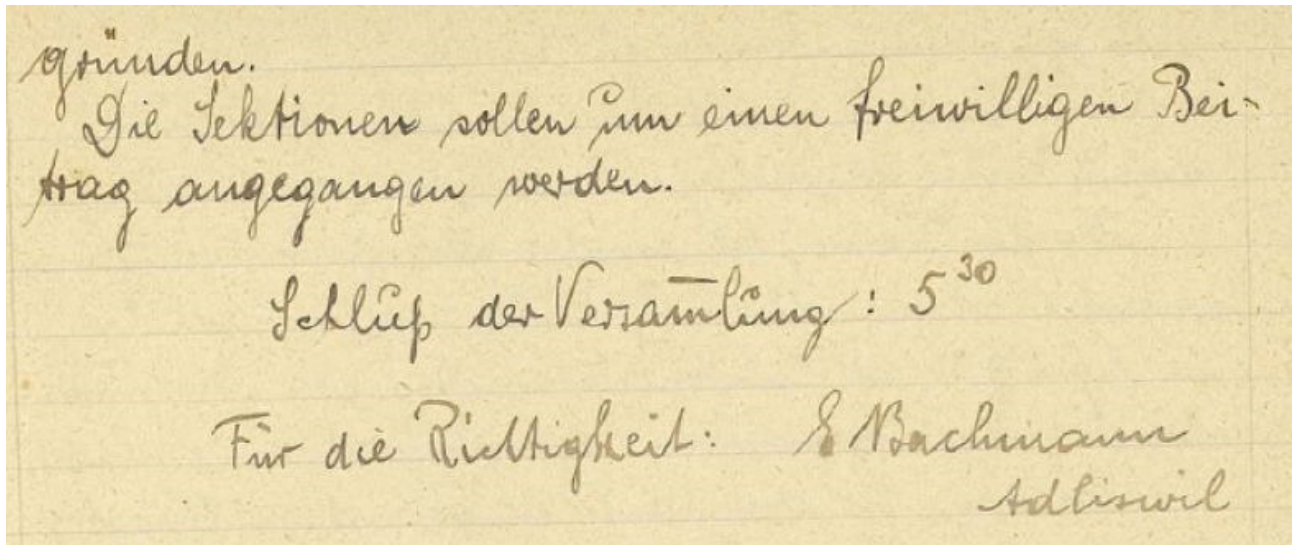 gründen.
Die Sektionen sollen um einen freiwilligen Bei-
trag angegangen werden.
Schluß der Versam̅lung: 5³⁰
Für die Richtigkeit: E Bachmann
Adliswil